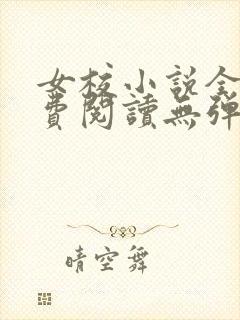 女校小說全
費閱讀無彈
晴空舞